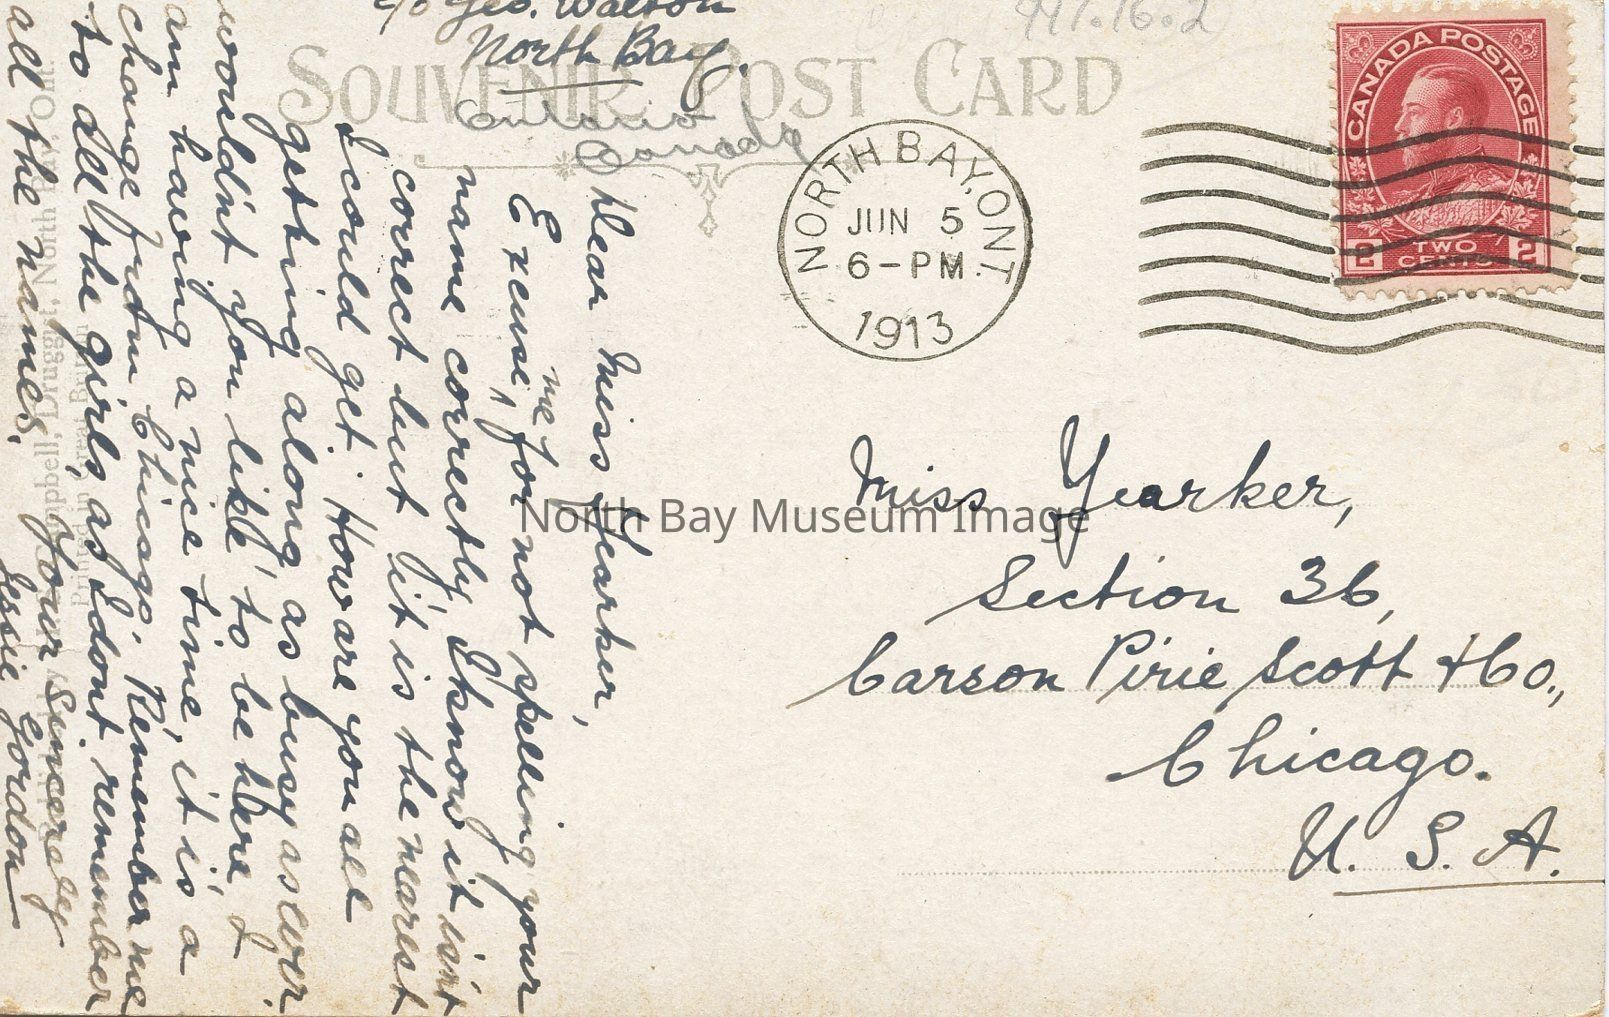 c/o Geo. Walton
North Bay.
Ontario
Canada
997.16.2
SOUVENIR POST CARD
CANADA POSTAGE
2 TWO CENTS 2
NORTH BAY, ONT.
JUN 5
6-PM
1913
Dear Miss Yearker,
Excuse me for not spelling your
name correctly, I know it isn't
correct but it is the nearest
I could get. How are you all
getting along as busy as ever.
wouldn't you like to be here I
am having a nice time, it is a
change from Chicago. Remember me
to all the girls as I dont remember
all the names.
Your Sincerely
Jessie Gordon
Miss Yearker,
Section 36,
Carson Pirie Scott & Co.,
Chicago.
U. S. A.
Campbell, Druggist, North Bay, Ont.
Printed in Great Britain
North Bay Museum Image